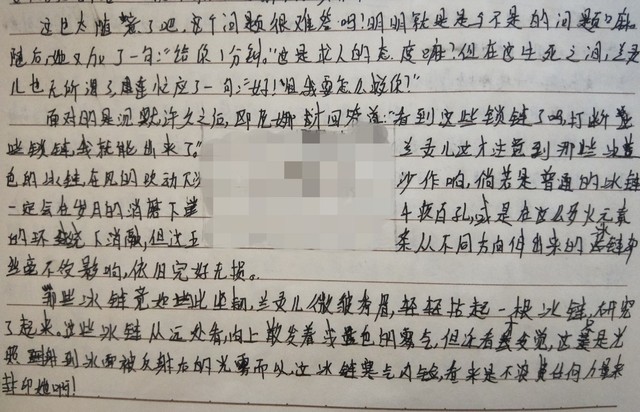 这也太随意了吧,这个问题很难答吗!明明就是是与不是的问题
随后,她又加了一句:"给你1分钟。"这是求人的态度嘛?但在这生死之间,兰灵
儿也无所谓了,连忙应了一句:"好!但我要怎么救你?"
面对的是沉默,许久之后,即回答道:"看到这些锁链了吗,打断这
些锁链,我就能出来了。" 兰灵儿这才注意到那些
色的冰链,在风的吹动下 沙作响,倘若是普通的冰链
一定会在岁月的消磨下 千疮百孔,或是在这么多火元素
的环绕下消融,但这五 条从不同方向伸出来的
丝毫不受影响,依旧完好无损。
那些冰链竟如此坚韧,兰灵儿微皱秀眉,轻轻拈起一根冰链,研究
了起来。这些冰链从远处看,向上散发着 色的雾气,但近看 发觉,这 是光
照射到冰面被反射出的光雾而以,这冰链寒气内敛,看来是不浪费任何力量来
封印她啊!